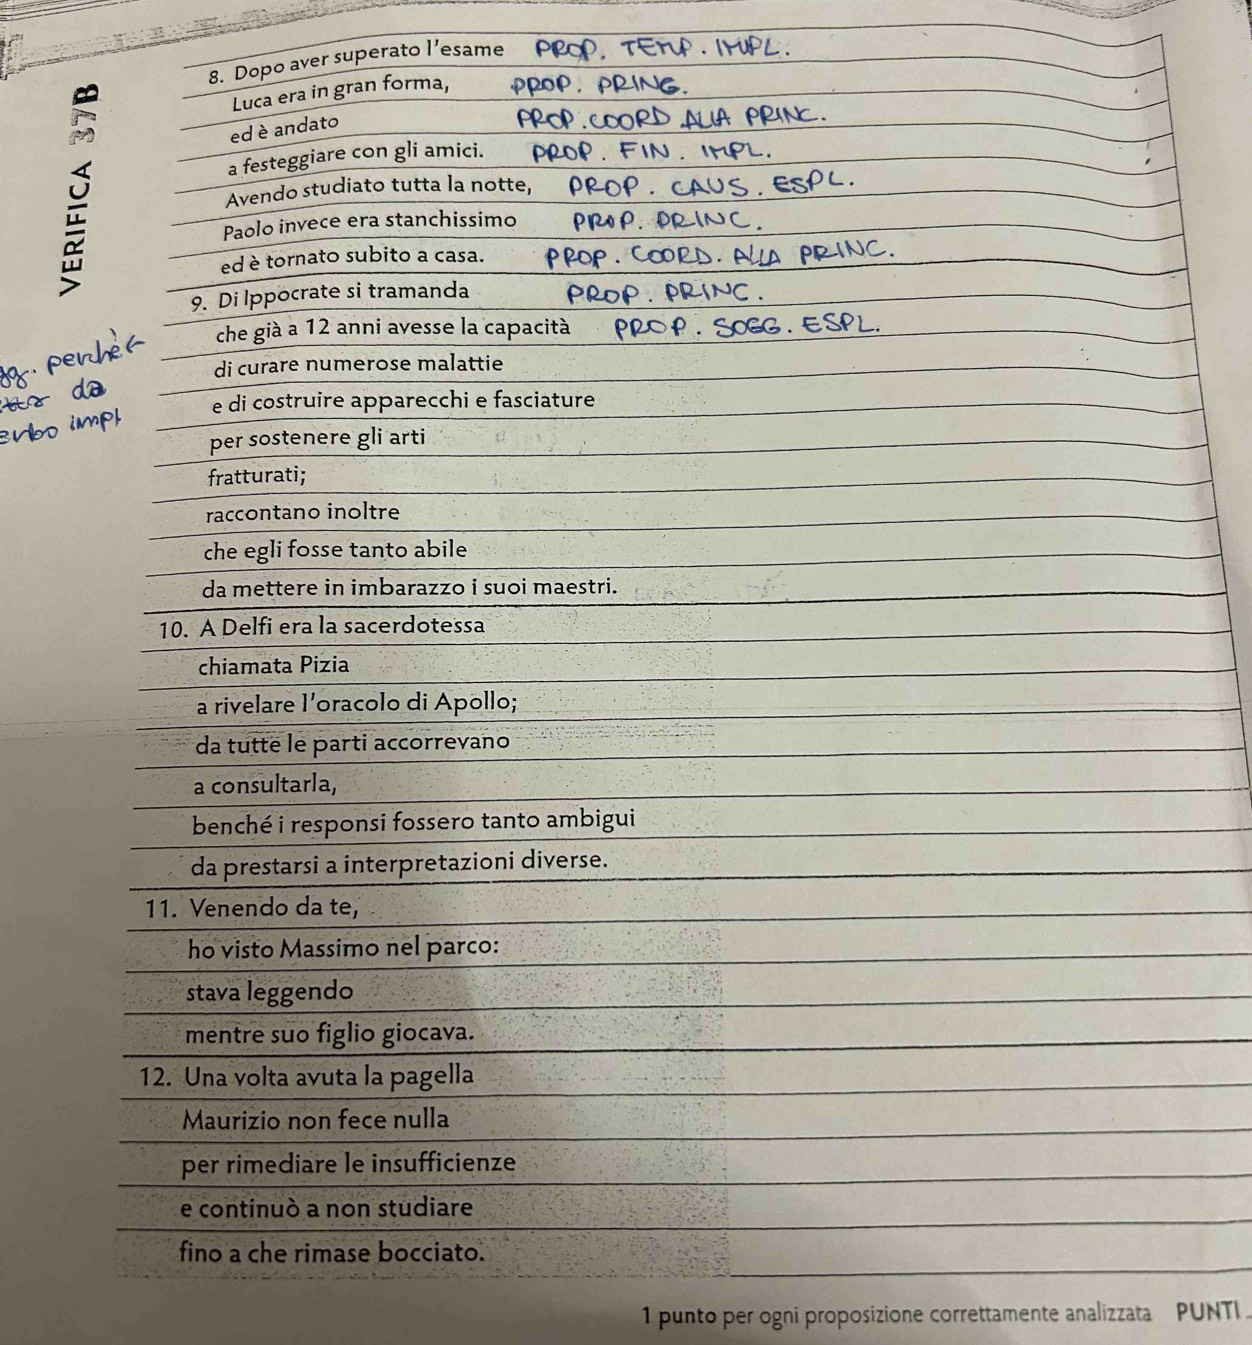 VERIFICA 37B
8. Dopo aver superato l'esame PROP. TEMP. IMPL.
Luca era in gran forma, PROP. PRING.
ed è andato PROP. COORD ALLA PRINC.
a festeggiare con gli amici. PROP. FIN. IMPL.
Avendo studiato tutta la notte, PROP. CAUS. ESPL.
Paolo invece era stanchissimo PROP. PRINC.
ed è tornato subito a casa. PROP. COORD. ALLA PRINC.
9. Di Ippocrate si tramanda PROP. PRINC.
che già a 12 anni avesse la capacità PROP. SOGG. ESPL.
perchè
di curare numerose malattie
da
e di costruire apparecchi e fasciature
impl
per sostenere gli arti
fratturati;
raccontano inoltre
che egli fosse tanto abile
da mettere in imbarazzo i suoi maestri.
10. A Delfi era la sacerdotessa
chiamata Pizia
a rivelare l'oracolo di Apollo;
da tutte le parti accorrevano
a consultarla,
benché i responsi fossero tanto ambigui
da prestarsi a interpretazioni diverse.
11. Venendo da te,
ho visto Massimo nel parco:
stava leggendo
mentre suo figlio giocava.
12. Una volta avuta la pagella
Maurizio non fece nulla
per rimediare le insufficienze
e continuò a non studiare
fino a che rimase bocciato.
1 punto per ogni proposizione correttamente analizzata PUNTI